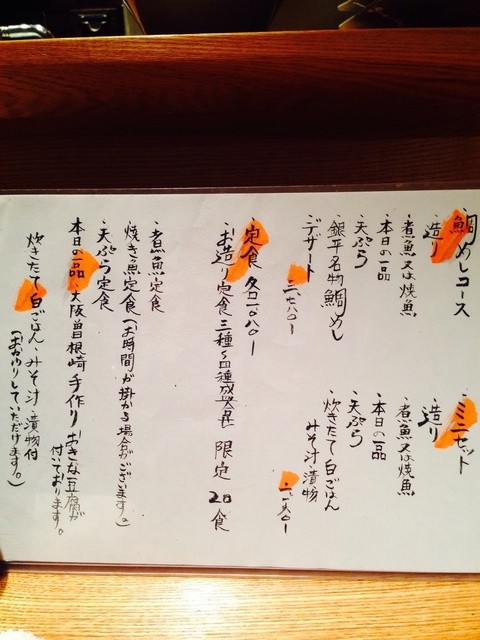 ・鯛めしコース
・造り
・煮魚又は焼魚
・本日の一品
・天ぷら
・銀平名物鯛めし
・デザート
・ミニセット
・造り
・煮魚又は焼魚
・本日の一品
・天ぷら
・炊きたて白ごはん
みそ汁・漬物
・定食 各二一〇八〇ー
・お造り定食 三種〜四種盛 限定 20食
・煮魚定食
・焼き魚定食(お時間が掛かる場合がございます。)
・天ぷら定食
本日の一品・大阪曽根崎手作りおきな豆腐が
付いております。
炊きたて白ごはん・みそ汁・漬物付
(おかわりしていただけます。)